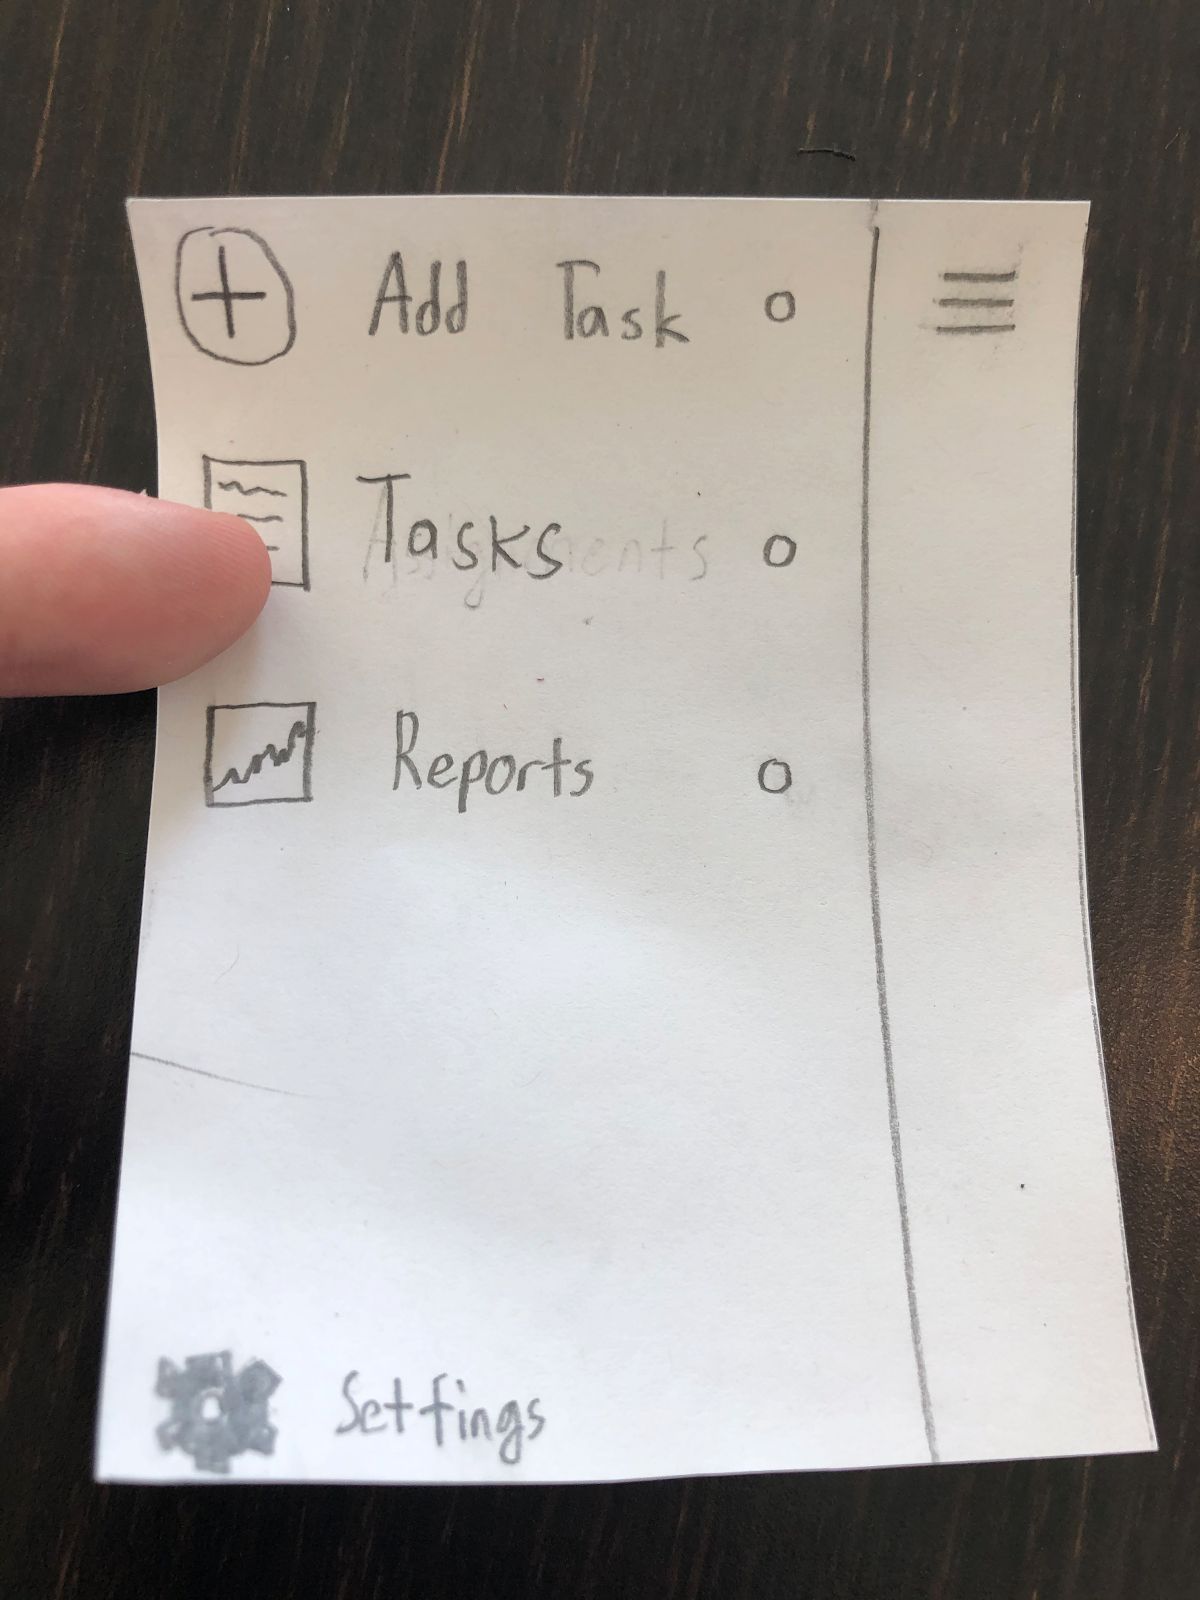 Add Task
Tasks
Reports
Settings